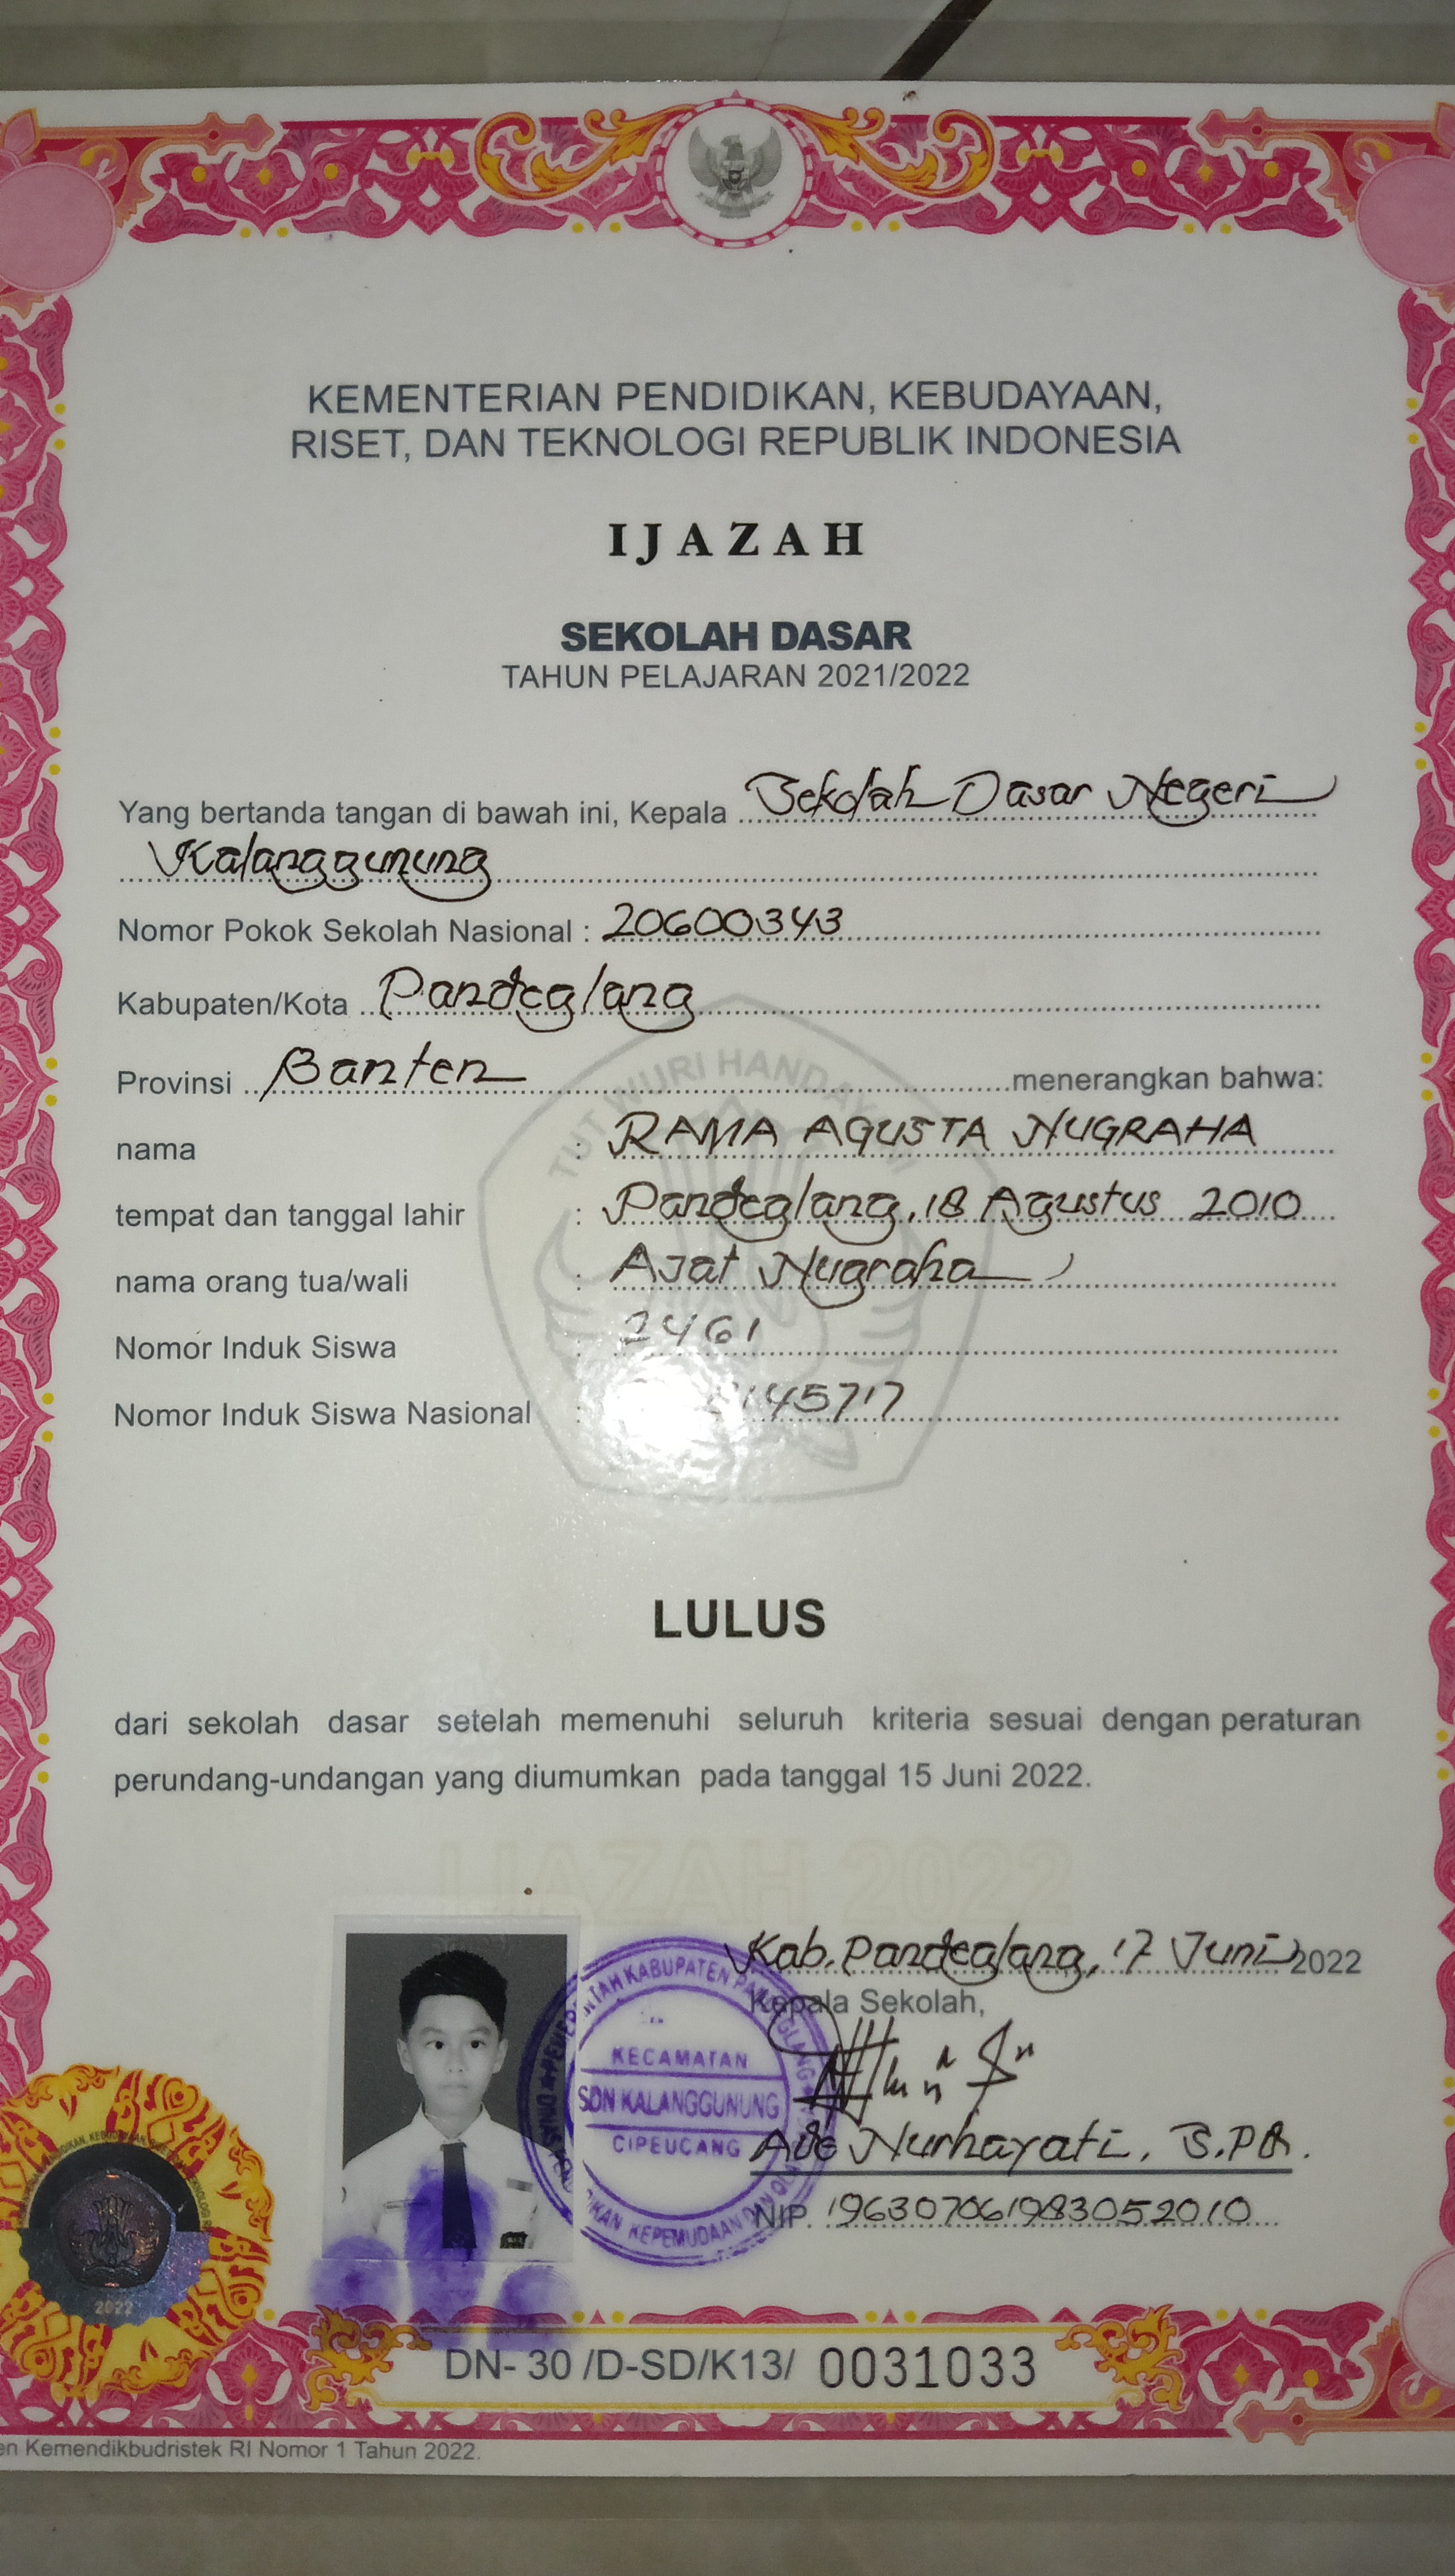 KEMENTERIAN PENDIDIKAN, KEBUDAYAAN,
RISET, DAN TEKNOLOGI REPUBLIK INDONESIA
IJAZAH
SEKOLAH DASAR
TAHUN PELAJARAN 2021/2022
Yang bertanda tangan di bawah ini, Kepala Sekolah Dasar Negeri
Kalanggunung
Nomor Pokok Sekolah Nasional : 20600343
Kabupaten/Kota Pandeglang
Provinsi Banten menerangkan bahwa:
nama : RAMA AGUSTA NUGRAHA
tempat dan tanggal lahir : Pandeglang, 18 Agustus 2010
nama orang tua/wali : Ajat Nugraha
Nomor Induk Siswa : 2461
Nomor Induk Siswa Nasional : 145717
TUT WURI HANDAYANI
LULUS
dari sekolah dasar setelah memenuhi seluruh kriteria sesuai dengan peraturan
perundang-undangan yang diumumkan pada tanggal 15 Juni 2022.
IJAZAH 2022
Kab. Pandeglang, 17 Juni 2022
Kepala Sekolah,
KECAMATAN
SDN KALANGGUNUNG
CIPEUCANG
Ade Nurhayati, S.Pd.
NIP. 196307061983052010
2022
DN- 30 /D-SD/K13/ 0031033
Kemendikbudristek RI Nomor 1 Tahun 2022.